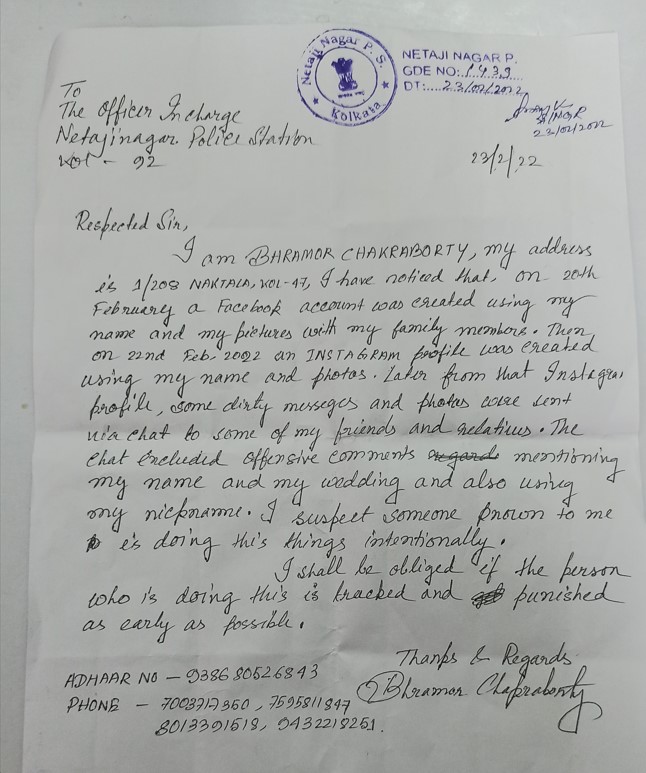 Netaji Nagar P. S.
Kolkata
NETAJI NAGAR P.
GDE NO: 1433
DT: 23/02/2022
23/02/2022
To
The Officer Incharge
Netajinagar Police Station
KOL - 92
23/2/22
Respected Sir,
I am BHRAMOR CHAKRABORTY, my address
is 1/208 NAKTALA, KOL-47, I have noticed that, on 20th
February a Facebook account was created using my
name and my pictures with my family members. Then
on 22nd Feb. 2022 an INSTAGRAM profile was created
using my name and photos. Later from that Instagra
profile, some dirty messeges and photos were sent
via chat to some of my friends and relatives. The
chat encluded offensive comments regards mentioning
my name and my wedding and also using
my nickname. I suspect someone known to me
is doing this things intentionally.
I shall be obliged if the person
who is doing this is tracked and punished
as early as possible.
Thanks & Regards
Bhramor Chakraborty
ADHAAR NO - 938680526843
PHONE - 7003717360, 7595811847
8013391518, 9432218251.